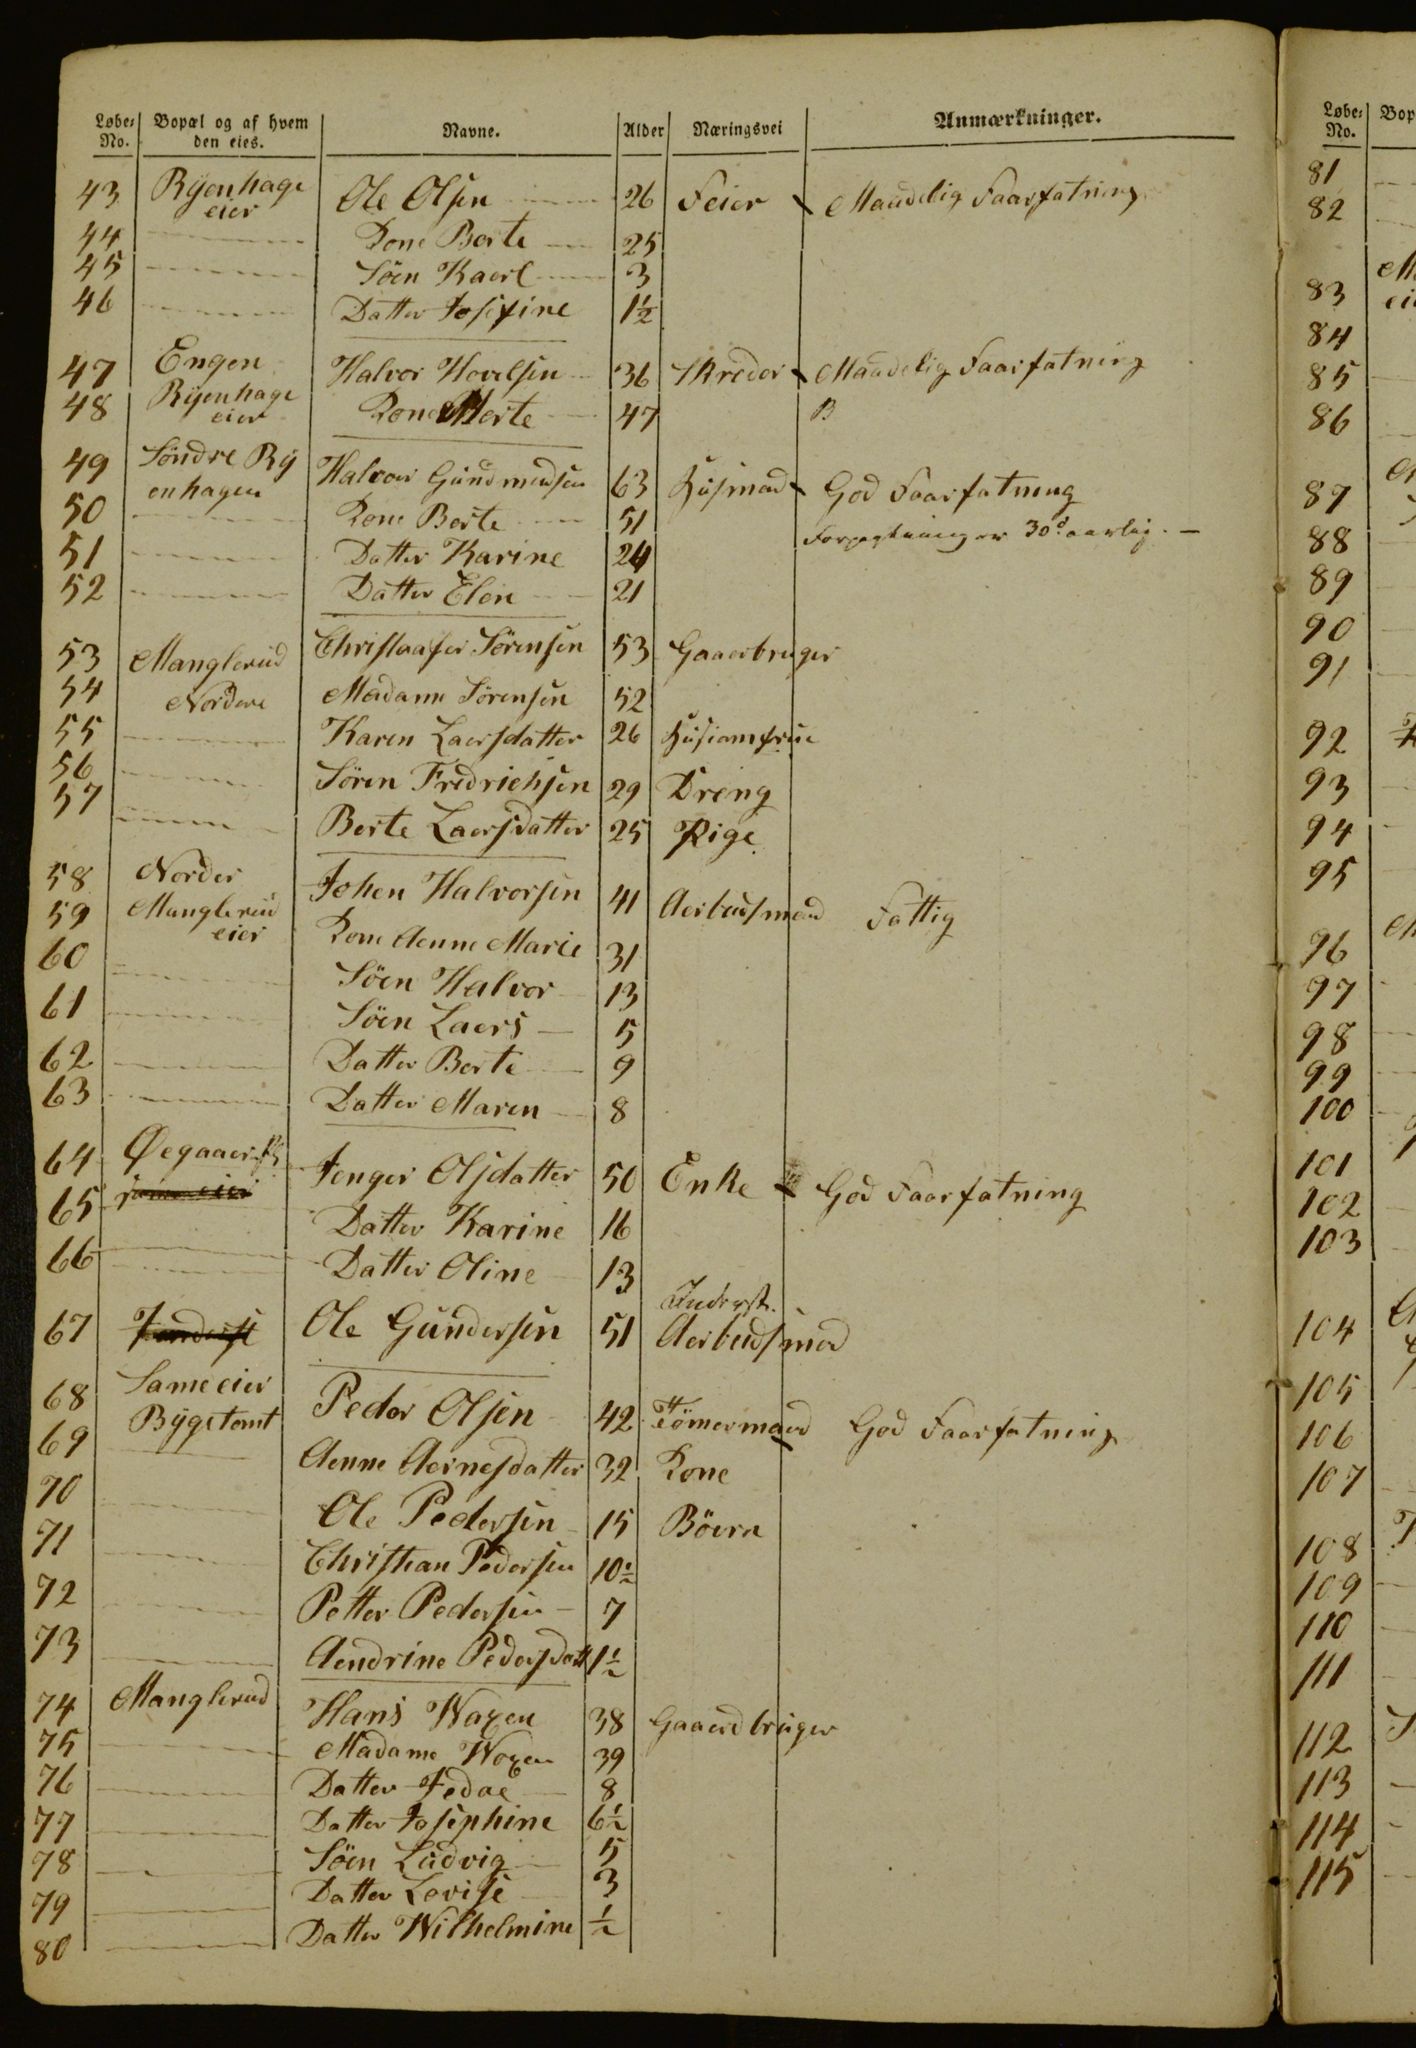 Løbe-No. Bopæl og af hvem den eies. Navne. Alder Næringsvei Anmærkninger.
43 Ryenhage eier Ole Olsen 26 Feier Maadelig Faarfatning
44 Kone Berte 25
45 Söen Kaerl 3
46 Datter Josefine 1½
47 Engen Halvor Hovelsen 36 Skreder Maadelig Faarfatning
48 Ryenhage eier Kone Merte 47
49 Söndre Ry Halvor Gundmundsen 63 Husmad God Faarfatning
50 enhagen Kone Berte 51 Forpagtning er 30 d. aarlig. —
51 Datter Karine 24
52 Datter Elen 21
53 Manglerud Christaafer Sörensen 53 Gaaerbruger
54 Nordere Madamm Sörensen 52
55 Karen Laersdatter 26 Husiomfrue
56 Sören Fredrichsen 29 Dreng
57 Berte Laersdatter 25 Pige
58 Norder Johen Halvorsen 41 Aerbeidsmand Fattig
59 Manglerud eier Kone Aenne Marie 31
60 Söen Halvor 13
61 Söen Laers 5
62 Datter Berte 9
63 Datter Maren 8
64 Øegaaer Jenger Olsdatter 50 Enke God Faarfatning
65 Datter Karine 16
66 Datter Oline 13
67 Ole Gundersen 51 Inderst. Aerbeidsmad
68 Same eier Peder Olsen 42 Tömermand God Faarfatning
69 Bygetomt Aenne Aernesdatter 32 Kone
70 Ole Pedersen 15 Böern
71 Christian Pedersen 10½
72 Petter Pedersen 7
73 Aendrine Pedersdatt 1½
74 Manglerud Hans Waxen 38 Gaaerdbruger
75 Madame Woxen 39
76 Datter Jedae 8
77 Datter Josephine 6½
78 Söen Ludvig 5
79 Datter Lovise 3
80 Datter Wilhelmine ½
Løbe-No. Bop
81
82
83
84
85
86
87
88
89
90
91
92
93
94
95
96
97
98
99
100
101
102
103
104
105
106
107
108
109
110
111
112
113
114
115